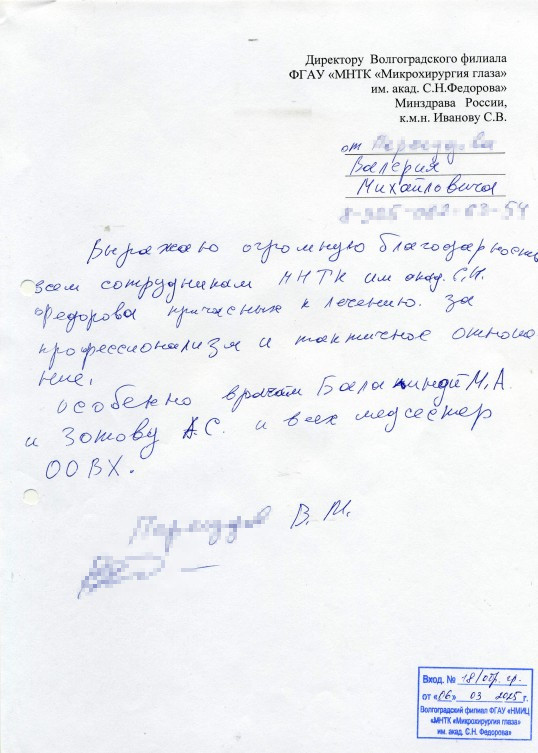 Директору Волгоградского филиала
ФГАУ «МНТК «Микрохирургия глаза»
им. акад. С.Н.Федорова»
Минздрава России,
к.м.н. Иванову С.В.
от
Валерия
Михайловича
Выражаю огромную благодарность
всем сотрудникам МНТК им акад. С.Н.
Федорова причасных к лечению. за
профессионализм и тактичное отноше
ние,
особенно врачам М.А.
и Зотову А.С. и всех медсестер
ООВХ.
В. М.
Вход. № 18/отр. гр.
от «06» 03 2025 г.
Волгоградский филиал ФГАУ «НМИЦ
«МНТК «Микрохирургия глаза»
им. акад. С.Н. Федорова»